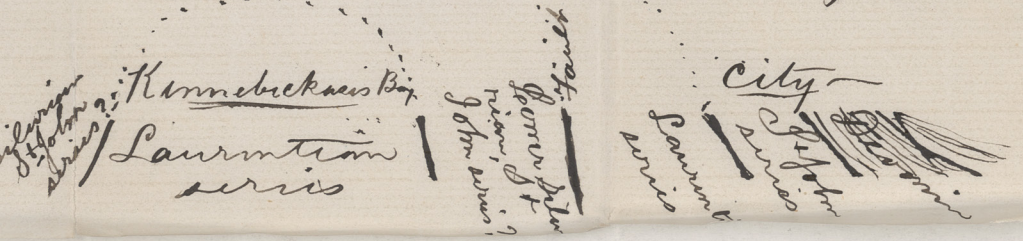 Silurian
St John
series?
Kennebeckacis Bay
Laurentian
series
Lower Silu
rian, St
John series?
Fault
City
Laurent
series
St John
series